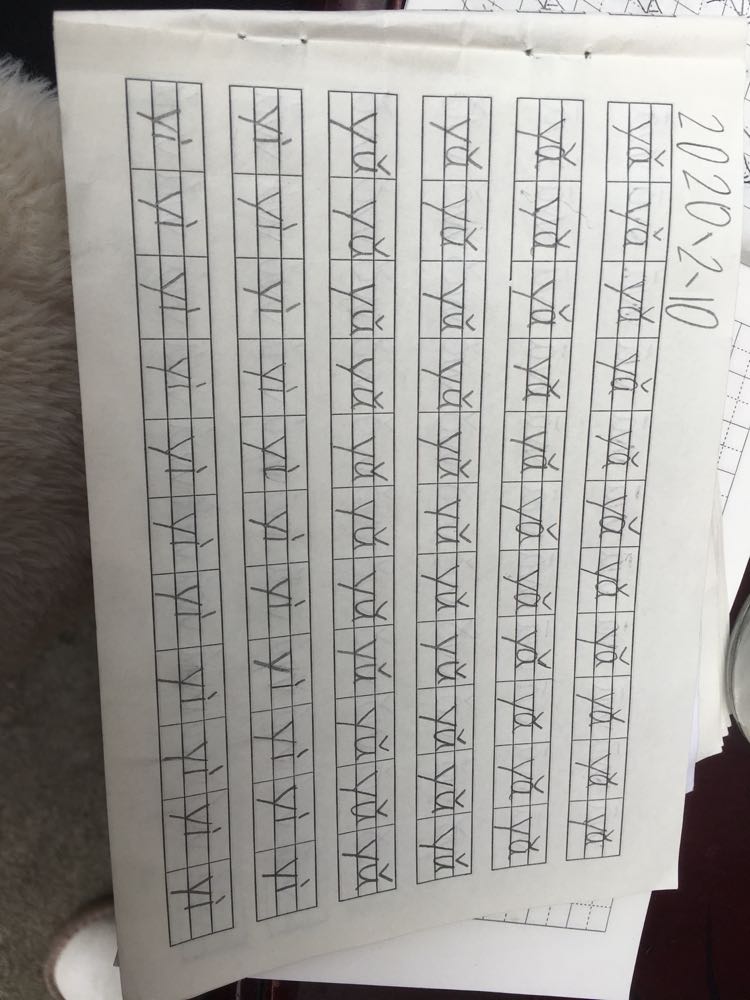 2020、2、10
yǎ yǎ yǎ yǎ yǎ yǎ yǎ yǎ yǎ yǎ yǎ
yǎ yǎ yǎ yǎ yǎ yǎ yǎ yǎ yǎ yǎ yǎ
yǎ yǎ yǎ yǎ yǎ yǎ yǎ yǎ yǎ yǎ yǎ
yǎ yǎ yǎ yǎ yǎ yǎ yǎ yǎ yǎ yǎ yǎ
yí yí yí yí yí yí yí yí yí yí yí
yí yí yí yí yí yí yí yí yí yí yí